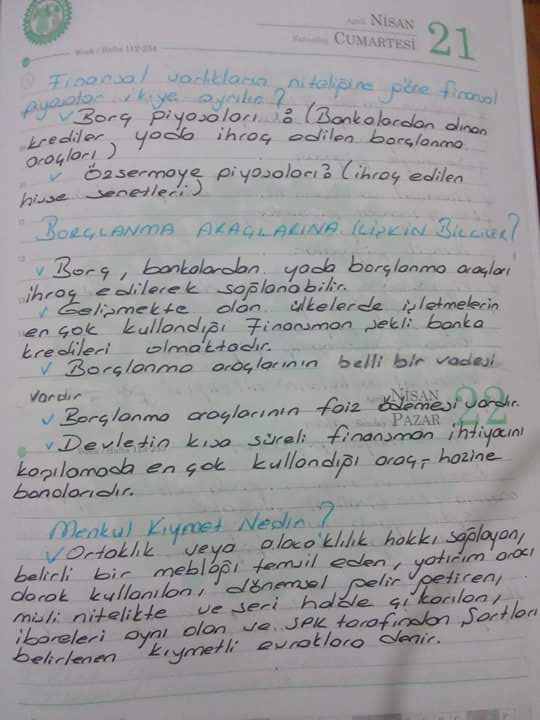 April NİSAN
Saturday CUMARTESİ 21
Week / Hafta 112-254
Finansal varlıkların niteliğine göre finansal
piyasalar ikiye ayrılır?
✓ Borç piyasaları : (Bankalardan alınan
krediler yada ihraç edilen borçlanma
araçları)
✓ Özsermaye piyasaları : (ihraç edilen
hisse senetleri)
BORÇLANMA ARAÇLARINA İLİŞKİN BİLGİLER?
✓ Borç, bankalardan yada borçlanma araçları
ihraç edilerek sağlanabilir.
✓ Gelişmekte olan ülkelerde işletmelerin
en çok kullandığı finansman şekli banka
kredileri olmaktadır.
✓ Borçlanma araçlarının belli bir vadesi
vardır
April NİSAN
Sunday PAZAR 22
✓ Borçlanma araçlarının faiz ödemesi vardır.
✓ Devletin kısa süreli finansman ihtiyacını
karşılamada en çok kullandığı araç, hazine
bonolarıdır.
Menkul Kıymet Nedir?
✓ Ortaklık veya alacaklılık hakkı sağlayan,
belirli bir meblağı temsil eden, yatırım aracı
olarak kullanılan, dönemsel gelir getiren,
misli nitelikte ve seri halde çıkarılan,
ibareleri aynı olan ve SPK tarafından Şartları
belirlenen kıymetli evraklara denir.